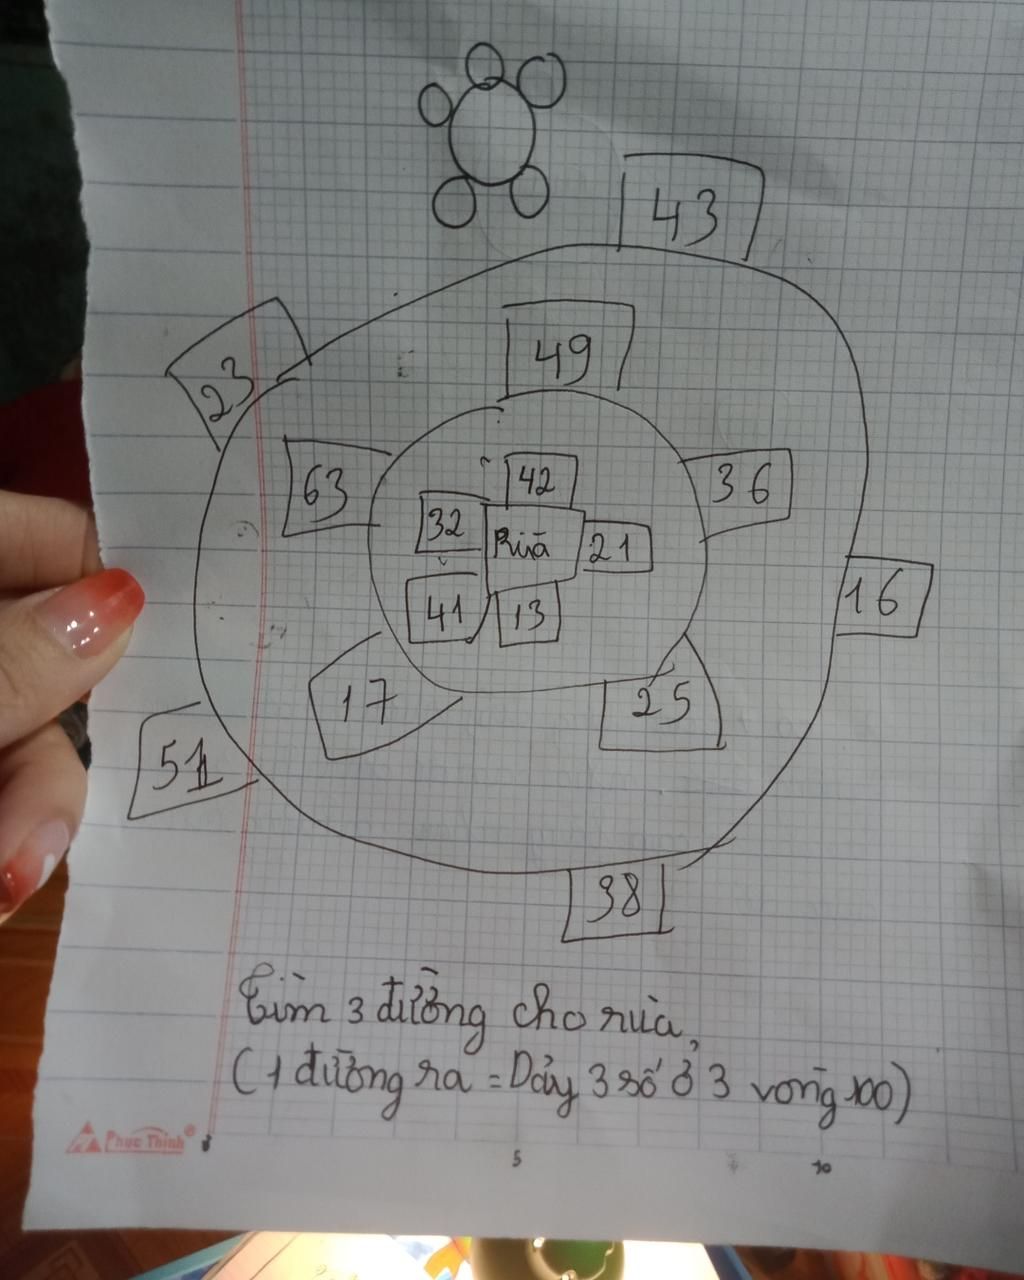 43
49
23
63
42
36
32
Rùa
21
16
41
13
17
25
51
38
Tìm 3 đường cho rùa,
(1 đường ra = Dãy 3 số ở 3 vòng 100)
Phúc Thịnh®
5
10